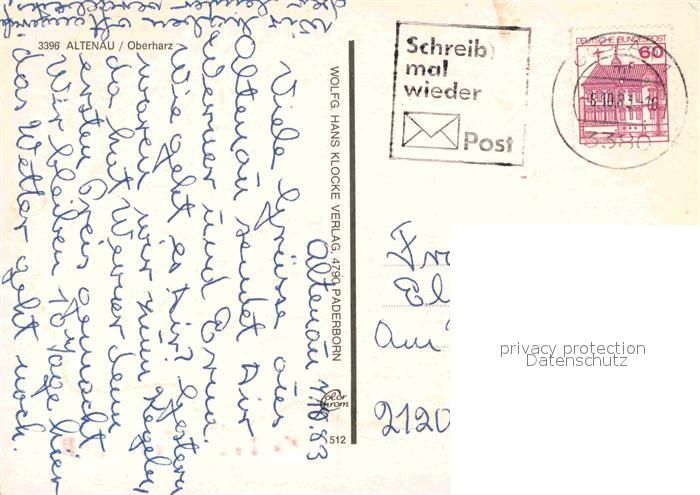 3396 ALTENAU / Oberharz
Altenau 7.10.83
Viele Grüsse aus
Altenau sendet Dir
Werner und Erna.
Wie geht es Dir? Gestern
waren wir zum Kegeln
da hat Werner den
ersten Preis gemacht
Wir bleiben 10 Tage hier
das Wetter geht noch.
Wir haben oft
WOLFG. HANS KLOCKE VERLAG, 4790 PADERBORN
color
chrom
512
Schreib
mal
wieder
Post
DEUTSCHE BUNDESPOST
60
-6.10.83-16
3380
Fr
El
Am
2120
privacy protection
Datenschutz